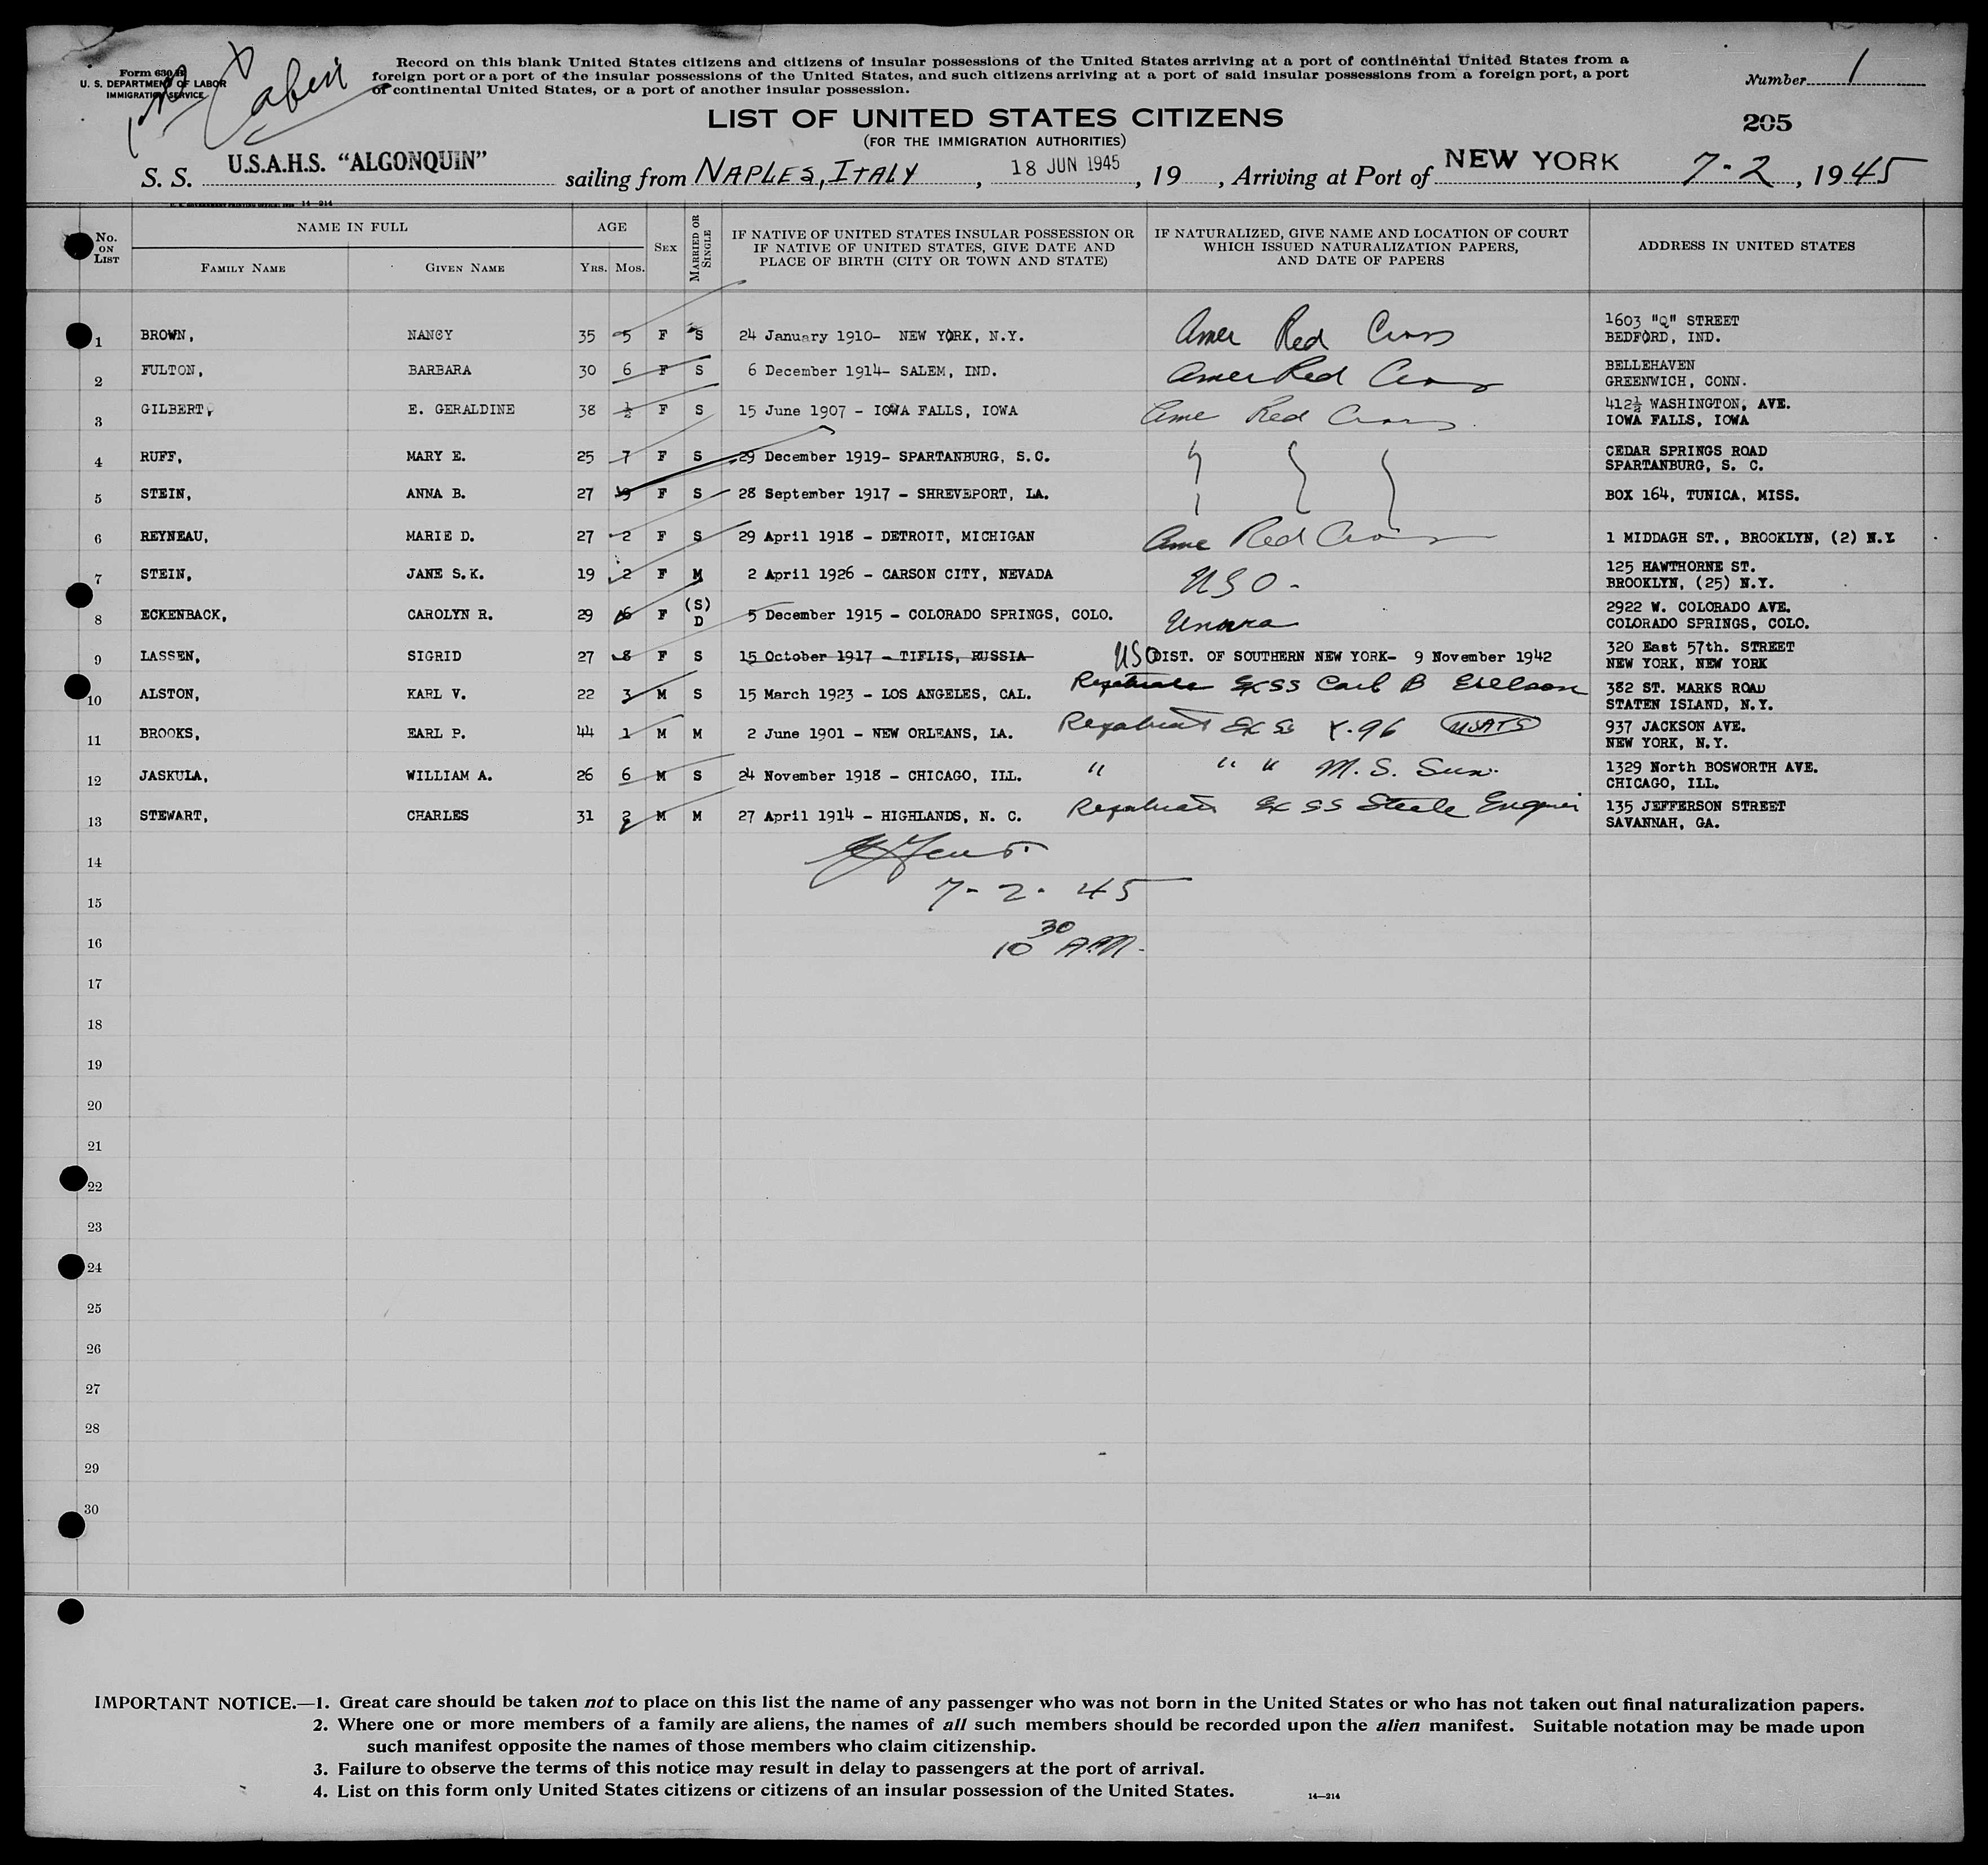 Form 630 B
U. S. DEPARTMENT OF LABOR
IMMIGRATION SERVICE
Record on this blank United States citizens and citizens of insular possessions of the United States arriving at a port of continental United States from a
foreign port or a port of the insular possessions of the United States, and such citizens arriving at a port of said insular possessions from a foreign port, a port
of continental United States, or a port of another insular possession.
Number 1
LIST OF UNITED STATES CITIZENS
205
(FOR THE IMMIGRATION AUTHORITIES)
S. S. U.S.A.H.S. "ALGONQUIN" sailing from NAPLES, ITALY, 18 JUN 1945, 19 , Arriving at Port of NEW YORK 7-2, 1945
14—214
No. ON LIST NAME IN FULL AGE SEX MARRIED OR SINGLE IF NATIVE OF UNITED STATES INSULAR POSSESSION OR IF NATIVE OF UNITED STATES, GIVE DATE AND PLACE OF BIRTH (CITY OR TOWN AND STATE) IF NATURALIZED, GIVE NAME AND LOCATION OF COURT WHICH ISSUED NATURALIZATION PAPERS, AND DATE OF PAPERS ADDRESS IN UNITED STATES
FAMILY NAME GIVEN NAME YRS. MOS.
1 BROWN, NANCY 35 5 F S 24 January 1910- NEW YORK, N.Y. Amer Red Cross 1603 "Q" STREET
BEDFORD, IND.
2 FULTON, BARBARA 30 6 F S 6 December 1914- SALEM, IND. Amer Red Cross BELLEHAVEN
GREENWICH, CONN.
3 GILBERT, E. GERALDINE 38 ½ F S 15 June 1907 - IOWA FALLS, IOWA Ame Red Cross 412½ WASHINGTON, AVE.
IOWA FALLS, IOWA
4 RUFF, MARY E. 25 7 F S 29 December 1919- SPARTANBURG, S.C. CEDAR SPRINGS ROAD
SPARTANBURG, S. C.
5 STEIN, ANNA B. 27 9 F S 28 September 1917 - SHREVEPORT, LA. BOX 164, TUNICA, MISS.
6 REYNEAU, MARIE D. 27 2 F S 29 April 1918 - DETROIT, MICHIGAN Ame Red Cross 1 MIDDAGH ST., BROOKLYN, (2) N.Y.
7 STEIN, JANE S.K. 19 2 F M 2 April 1926 - CARSON CITY, NEVADA USO - 125 HAWTHORNE ST.
BROOKLYN, (25) N.Y.
8 ECKENBACK, CAROLYN R. 29 6 F (S) D 5 December 1915 - COLORADO SPRINGS, COLO. Unrra 2922 W. COLORADO AVE.
COLORADO SPRINGS, COLO.
9 LASSEN, SIGRID 27 8 F S 15 October 1917 - TIFLIS, RUSSIA USO DIST. OF SOUTHERN NEW YORK- 9 November 1942 320 East 57th. STREET
NEW YORK, NEW YORK
10 ALSTON, KARL V. 22 3 M S 15 March 1923 - LOS ANGELES, CAL. Repatriate Ex SS Carl B Eielson 382 ST. MARKS ROAD
STATEN ISLAND, N.Y.
11 BROOKS, EARL P. 44 1 M M 2 June 1901 - NEW ORLEANS, LA. Repatriat Ex SS Y-96 USATS 937 JACKSON AVE.
NEW YORK, N.Y.
12 JASKULA, WILLIAM A. 26 6 M S 24 November 1918 - CHICAGO, ILL. " " " M. S. Sun. 1329 North BOSWORTH AVE.
CHICAGO, ILL.
13 STEWART, CHARLES 31 2 M M 27 April 1914 - HIGHLANDS, N. C. Repatriat Ex SS Steele Engineer 135 JEFFERSON STREET
SAVANNAH, GA.
14
7-2-45
15
16 10 30 A.M.
17
18
19
20
21
22
23
24
25
26
27
28
29
30
IMPORTANT NOTICE.—1. Great care should be taken not to place on this list the name of any passenger who was not born in the United States or who has not taken out final naturalization papers.
2. Where one or more members of a family are aliens, the names of all such members should be recorded upon the alien manifest. Suitable notation may be made upon
such manifest opposite the names of those members who claim citizenship.
3. Failure to observe the terms of this notice may result in delay to passengers at the port of arrival.
4. List on this form only United States citizens or citizens of an insular possession of the United States.
14—214